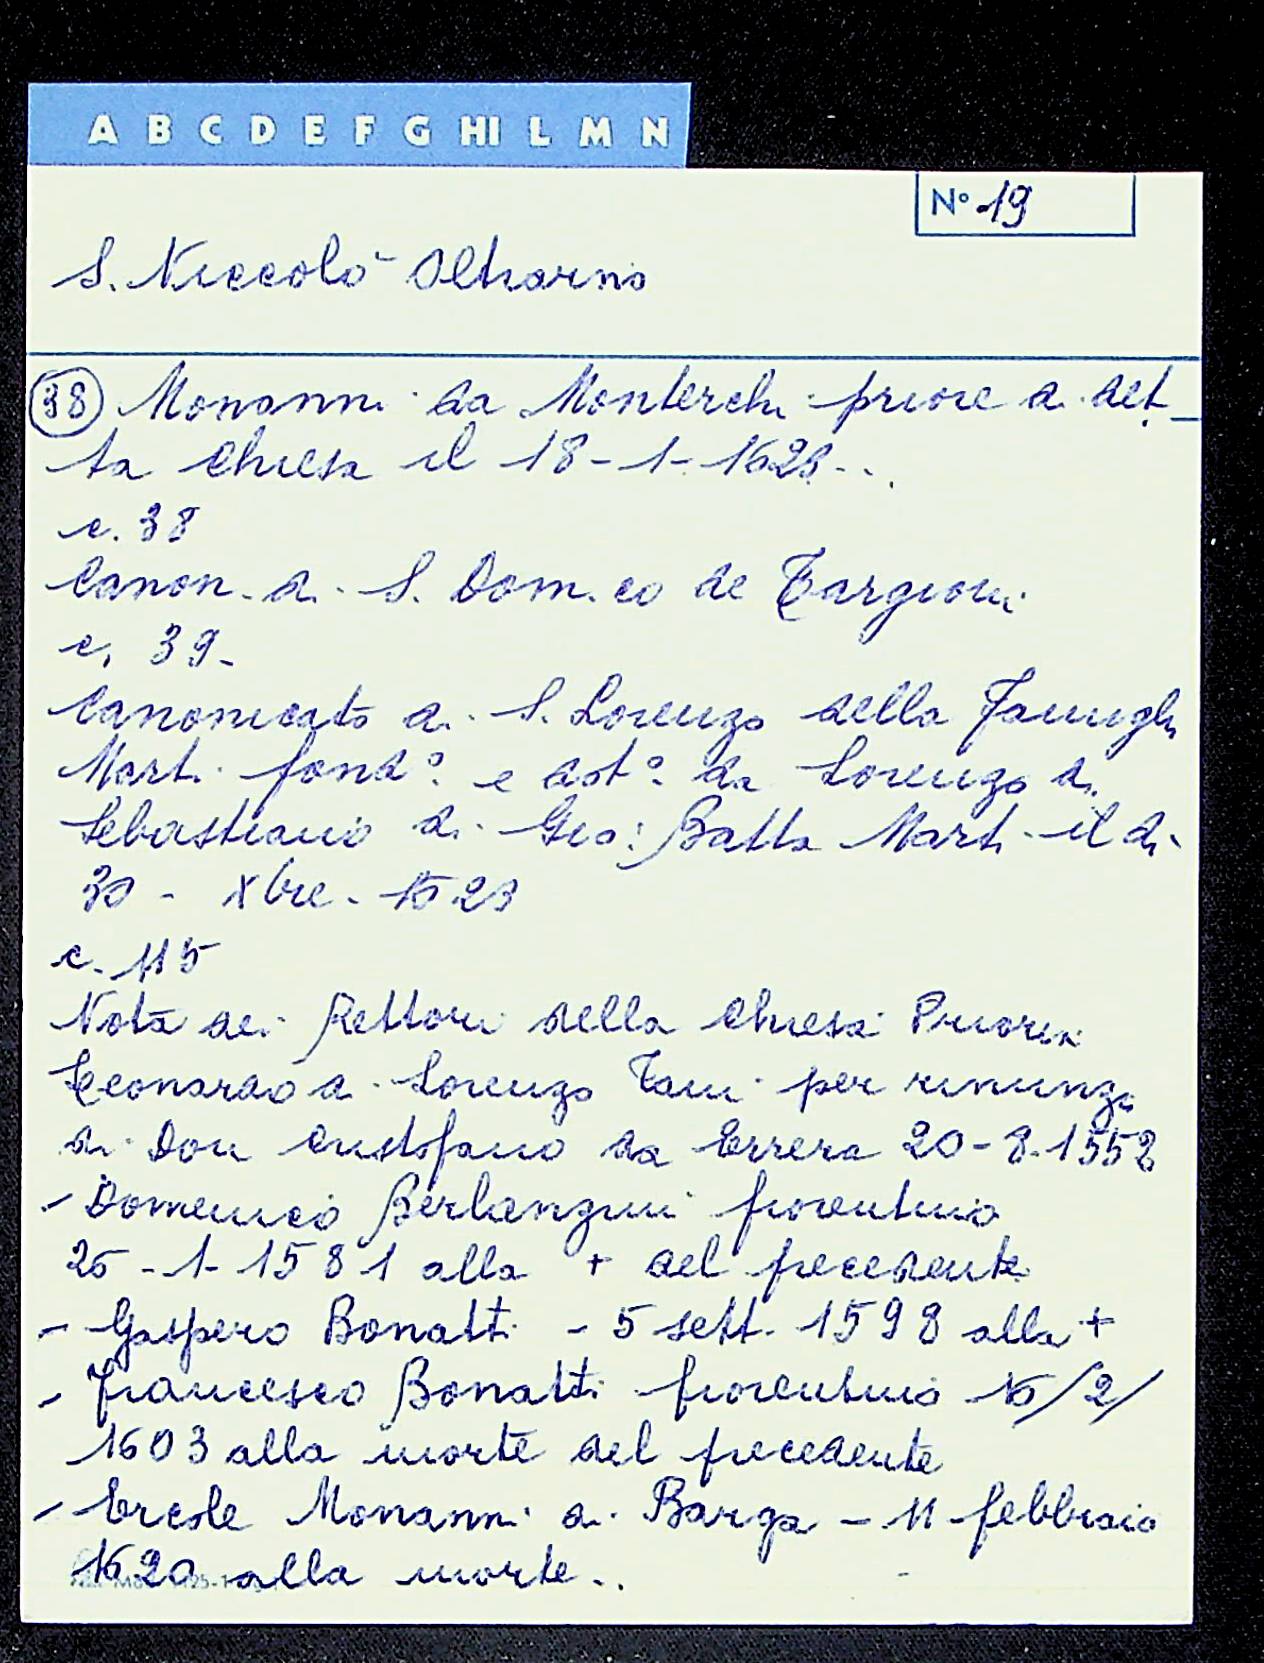 A B C D E F G HI L M N
N° 19
S. Niccolò Oltrarno
38 Monanni da Monterchi priore di det_
ta Chiesa il 18-1-1623..
c. 38
Canon. di S. Dom.co de Targioni
c. 39-
Canonicato di S. Lorenzo della Famiglia
Marti fond° e dot° da Lorenzo di
Sebastiano di Gio: Batta Marti il dì
30 - Xbre - 1623
c. 115
Nota dei Rettori della Chiesa Priori:
Leonardo di Lorenzo Tani per rinunzia
di Don Cristofano da Errera 20-8-1552
- Domenico Berlanzini fiorentino
25-1-1581 alla + del precedente
- Gaspero Bonatti - 5 sett. 1598 alla +
- Francesco Bonatti fiorentino 16/2/
1603 alla morte del precedente
- Ercole Monanni di Barga - 11 febbraio
1620 alla morte..